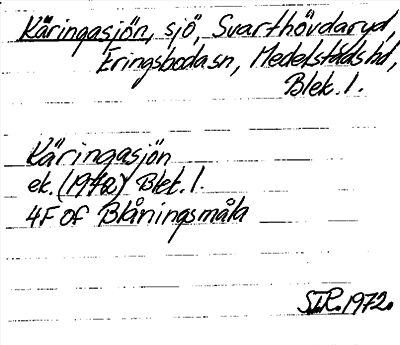 Käringasjön, sjö, Svarthövdaryd,
Eringsbodasn, Medelstads hd,
Blek. l.
Käringasjön
ek. (1940) Blek. l.
4F of Blåningsmåla
S.I.R. 1972.